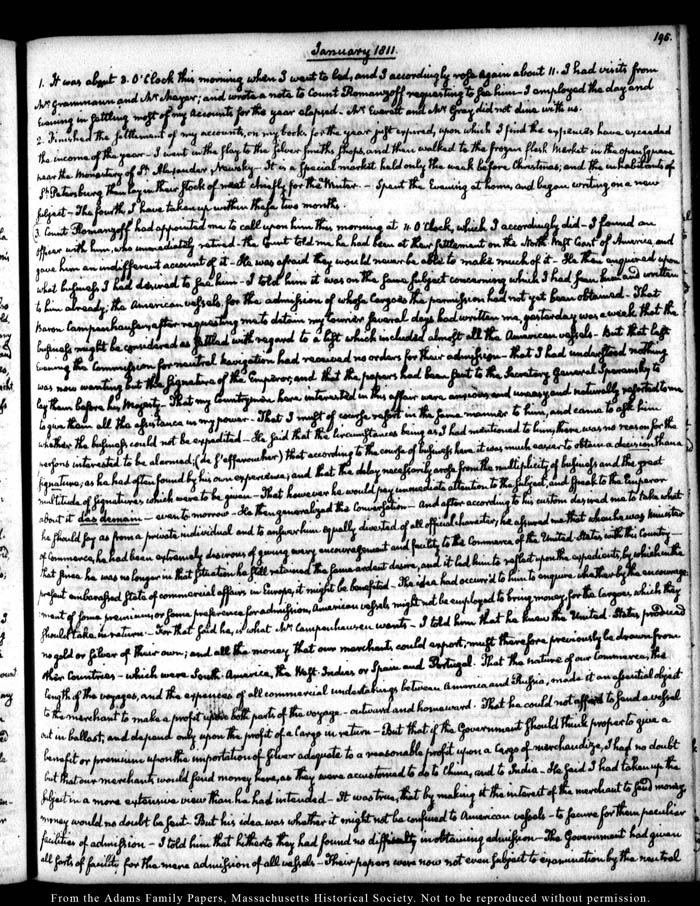 195.
January 1811.
1. It was about 3. O'Clock this morning when I went to bed, and I accordingly rose again about 11. I had visits from
Mr Grammann and Mr Mayer; and wrote a note to Count Romanzoff requesting to see him — I employed the day and
Evening in settling most of my accounts for the year elapsed — Mr Everett and Mr Gray did not dine with us.
2. Finished the settlement of my accounts, on my books for the year just expired, upon which I find the expences have exceeded
the income of the year — I went in the Sley to the Silver smiths shops, and then walked to the frozen flesh Market in the open Square
near the Monastery of St. Alexander Newsky — It is a Special market held only the week before Christmas; and the inhabitants of
St. Petersburg then lay in their stock of meat chiefly for the Winter. — Spent the Evening at home, and began writing on a new
subject — The fourth, I have taken up within these two months.
3. Count Romanzoff had appointed me to call upon him this morning at 11 O'Clock, which I accordingly did — I found an
officer with him, who immediately retired — the Count told me he had been at their settlement on the North West Coast of America, and
gave him an indifferent account of it — He was afraid they would never be able to make much of it — He then enquired upon
what business I had desired to see him — I told him it was on the same subject concerning which I had seen him and written
to him already; the American vessels, for the admission of whose Cargoes the permission had not yet been obtained — That
Baron Campenhausen, after requesting me to detain my courier several days had written me, yesterday was a week, that the
business might be considered as settled with regard to a list which included almost all the American vessels — But that last
Evening the Commission for neutral navigation had received no orders for their admission — that I had understood nothing
was now wanting but the signature of the Emperor; and that the papers had been sent to the Secretary General Speransky to
lay them before his Majesty. That my Countrymen have interested in this affair were anxious and uneasy and naturally resorted to me
to give them all the assistance in my power — That I must of course resort in the same manner to him, and came to ask him
whether the business could not be expedited — He said that the circumstances being as I had mentioned to him, there was no reason for the
persons interested to be alarmed; (de s'effaroucher) that according to the course of business here it was much easier to obtain a decision than a
signature, as he had often found by his own experience; and that the delay necessarily arose from the multiplicity of business and the great
multitude of signatures which were to be given — That however he would pay immediate attention to the subject, and speak to the Emperor
about it des demain — even to-morrow — He then generalized the Conversation — And after according to his custom desired me to take what
he should say as from a private individual and to answer him equally divested of all official character, he assured me that when he was Minister
of Commerce, he had been extremely desirous of giving every encouragement and facility to the Commerce of the United States with this Country —
that since he was no longer in that situation he still retained the same ardent desire, and it led him to reflect upon the expedients, by which in the
present embarrassed state of commercial affairs in Europe, it might be benefited — The idea had occurred to him to enquire whether by the encourage
ment of some premium, or some preference for admission, American vessels might not be employed to bring money, for the Cargoes which they
should take in return — For that said he, is what Mr Campenhausen wants — I told him that he knew the United States produced
no gold or silver of their own; and all the money that our merchants could export, must therefore previously be drawn from
other Countries — which were South-America, the West-Indies or Spain and Portugal. That the nature of our Commerce, the
length of the voyages, and the expences of all commercial undertakings between America and Russia, made it an essential object
to the merchant to make a profit upon both parts of the voyage — outward and homeward — That he could not afford to send a vessel
out in ballast, and depend only upon the profit of a Cargo in return — But that if the Government should think proper to give a
benefit or premium upon the importation of silver adequate to a reasonable profit upon a Cargo of merchandize, I had no doubt
but that our merchants would send money here, as they were accustomed to do to China, and to India — He said I had taken up the
subject in a more extensive view than he had intended — It was true, that by making it the interest of the merchant to send money,
money would no doubt be sent — But his idea was whether it might not be confined to American vessels — to secure for them peculiar
facilities of admission — I told him that hitherto they had found no difficulty in obtaining admission — The Government had given
all sorts of facility, for the mere admission of all vessels — Their papers were now not even subject to examination by the neutral
From the Adams Family Papers, Massachusetts Historical Society. Not to be reproduced without permission.